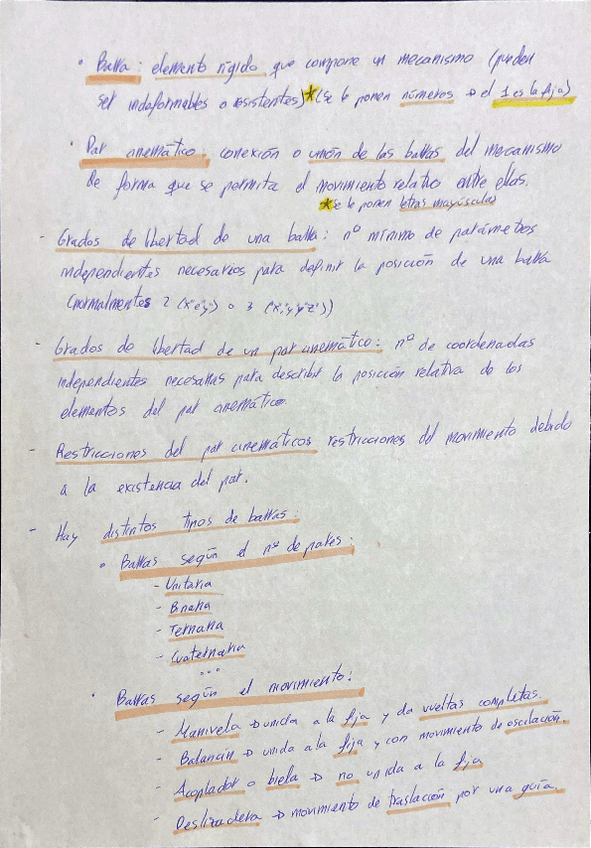 • Barra: elemento rígido que compone un mecanismo (pueden
ser indeformables o resistentes)*(se le ponen números → el 1 es la fija)
• Par cinemático: conexión o unión de las barras del mecanismo
de forma que se permita el movimiento relativo entre ellas.
*se le ponen letras mayúsculas
- Grados de libertad de una barra: nº mínimo de parámetros
independientes necesarios para definir la posición de una barra
(normalmentes 2 ("x" e "y") o 3 ("x", "y" y "z"))
- Grados de libertad de un par cinemático: nº de coordenadas
independientes necesarias para describir la posición relativa de los
elementos del par cinemático.
- Restricciones del par cinemáticos restricciones del movimiento debido
a la existencia del par.
- Hay distintos tipos de barras:
• Barras según el nº de pares:
- Unitaria
- Binaria
- Ternaria
- Cuaternaria
...
• Barras según el movimiento:
- Manivela → unida a la fija y da vueltas completas.
- Balancín → unida a la fija y con movimiento de oscilación.
- Acoplador o biela → no unida a la fija
- Deslizadera → movimiento de traslación por una guía.